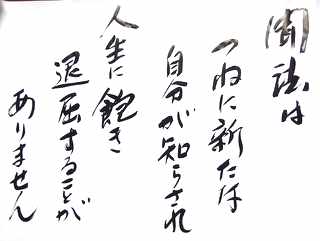 聞法は
つねに新たな
自分が知らされ
人生に飽き
退屈することが
ありません